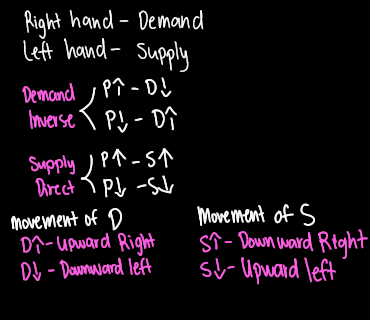 Right hand - Demand
Left hand - Supply
Demand Inverse
P↑ - D↓
P↓ - D↑
Supply Direct
P↑ - S↑
P↓ - S↓
Movement of D
D↑ - Upward Right
D↓ - Downward left
Movement of S
S↑ - Downward Right
S↓ - Upward left